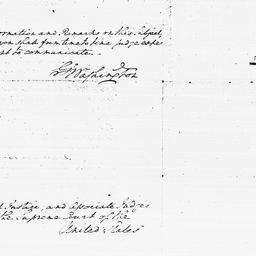 formation and Remarks on this Subject,
you shall from time to time judge expe
nt to communicate.
G. Washington
Justice, and Associate Judges
the supreme Court of the
United States